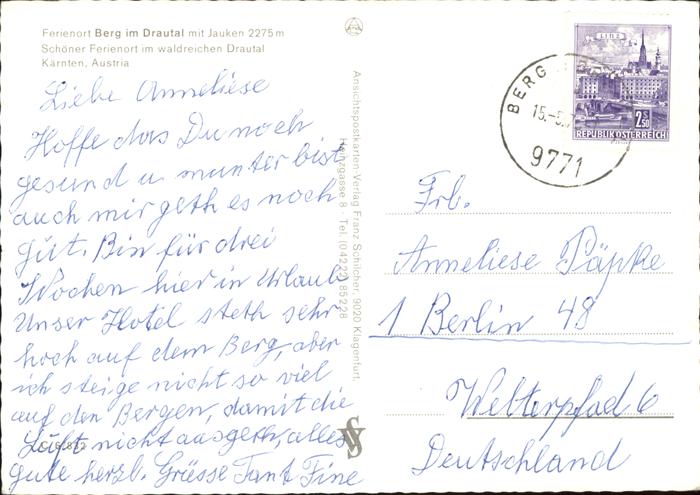 Ferienort Berg im Drautal mit Jauken 2275 m
Schöner Ferienort im waldreichen Drautal
Kärnten, Austria
Liebe Anneliese
Hoffe das Du noch
gesund u munter bist
auch mir geth es noch
gut. Bin für drei
Wochen hier in Urlaub
Unser Hotel steth sehr
hoch auf dem Berg, aber
ich steige nicht so viel
auf den Bergen, damit die
Luft nicht ausgeth, alles
gute herzl. Grüsse Tant Fine
Ansichtspostkarten-Verlag Franz Schilcher, 9020 Klagenfurt,
Heinzgasse 8 · Tel. (04222) 85228
LINZ
2.50 S
REPUBLIK ÖSTERREICH
BERG
15.-
9771
Frl.
Anneliese Päpke
1 Berlin 48
Welterpfad 6
Deutschland